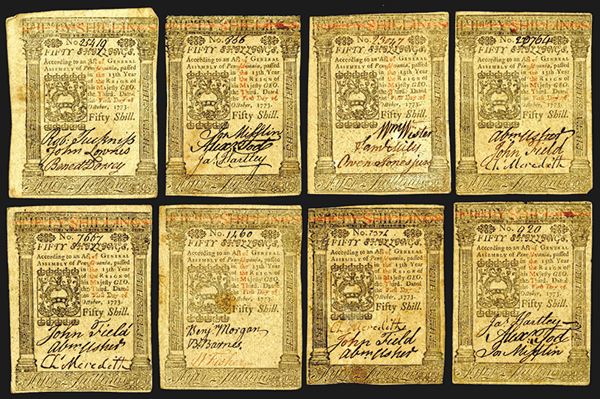 FIFTY SHILLINGS
No. 25419
FIFTY SHILLINGS,
According to an Act of GENERAL
ASSEMBLY of Pennsylvania, passed
in the 13th Year
of the REIGN of
his Majesty GEO.
the Third. Dated
the First Day of
October, 1773.
Fifty Shill.
John Lownes
FIFTY SHILLINGS
No. 766
FIFTY SHILLINGS,
According to an Act of GENERAL
ASSEMBLY of Pennsylvania, passed
in the 13th Year
of the REIGN of
his Majesty GEO.
the Third. Dated
the First Day of
October, 1773.
Fifty Shill.
Jon Mifflin
Alex Tod
Ja Hartley
FIFTY SHILLINGS
No.
FIFTY SHILLINGS,
According to an Act of GENERAL
ASSEMBLY of Pennsylvania, passed
in the 13th Year
of the REIGN of
his Majesty GEO.
the Third. Dated
the First Day of
October, 1773.
Fifty Shill.
Owen Jones junr
FIFTY SHILLINGS
No. 20764
FIFTY SHILLINGS,
According to an Act of GENERAL
ASSEMBLY of Pennsylvania, passed
in the 13th Year
of the REIGN of
his Majesty GEO.
the Third. Dated
the First Day of
October, 1773.
Fifty Shill.
Abm Usher
John Field
Ch Meredith
FIFTY SHILLINGS
No. 7667
FIFTY SHILLINGS,
According to an Act of GENERAL
ASSEMBLY of Pennsylvania, passed
in the 13th Year
of the REIGN of
his Majesty GEO.
the Third. Dated
the First Day of
October, 1773.
Fifty Shill.
John Field
Abm Usher
Ch Meredith
FIFTY SHILLINGS
No. 1460
FIFTY SHILLINGS,
According to an Act of GENERAL
ASSEMBLY of Pennsylvania, passed
in the 13th Year
of the REIGN of
his Majesty GEO.
the Third. Dated
the First Day of
October, 1773.
Fifty Shill.
Benj Morgan
Barnes
FIFTY SHILLINGS
No.
FIFTY SHILLINGS,
According to an Act of GENERAL
ASSEMBLY of Pennsylvania, passed
in the 13th Year
of the REIGN of
his Majesty GEO.
the Third. Dated
the First Day of
October, 1773.
Fifty Shill.
Ch Meredith
John Field
Abm Usher
FIFTY SHILLINGS
No. 920
FIFTY SHILLINGS,
According to an Act of GENERAL
ASSEMBLY of Pennsylvania, passed
in the 13th Year
of the REIGN of
his Majesty GEO.
the Third. Dated
the First Day of
October, 1773.
Fifty Shill.
Ja Hartley
Alex Tod
Jon Mifflin